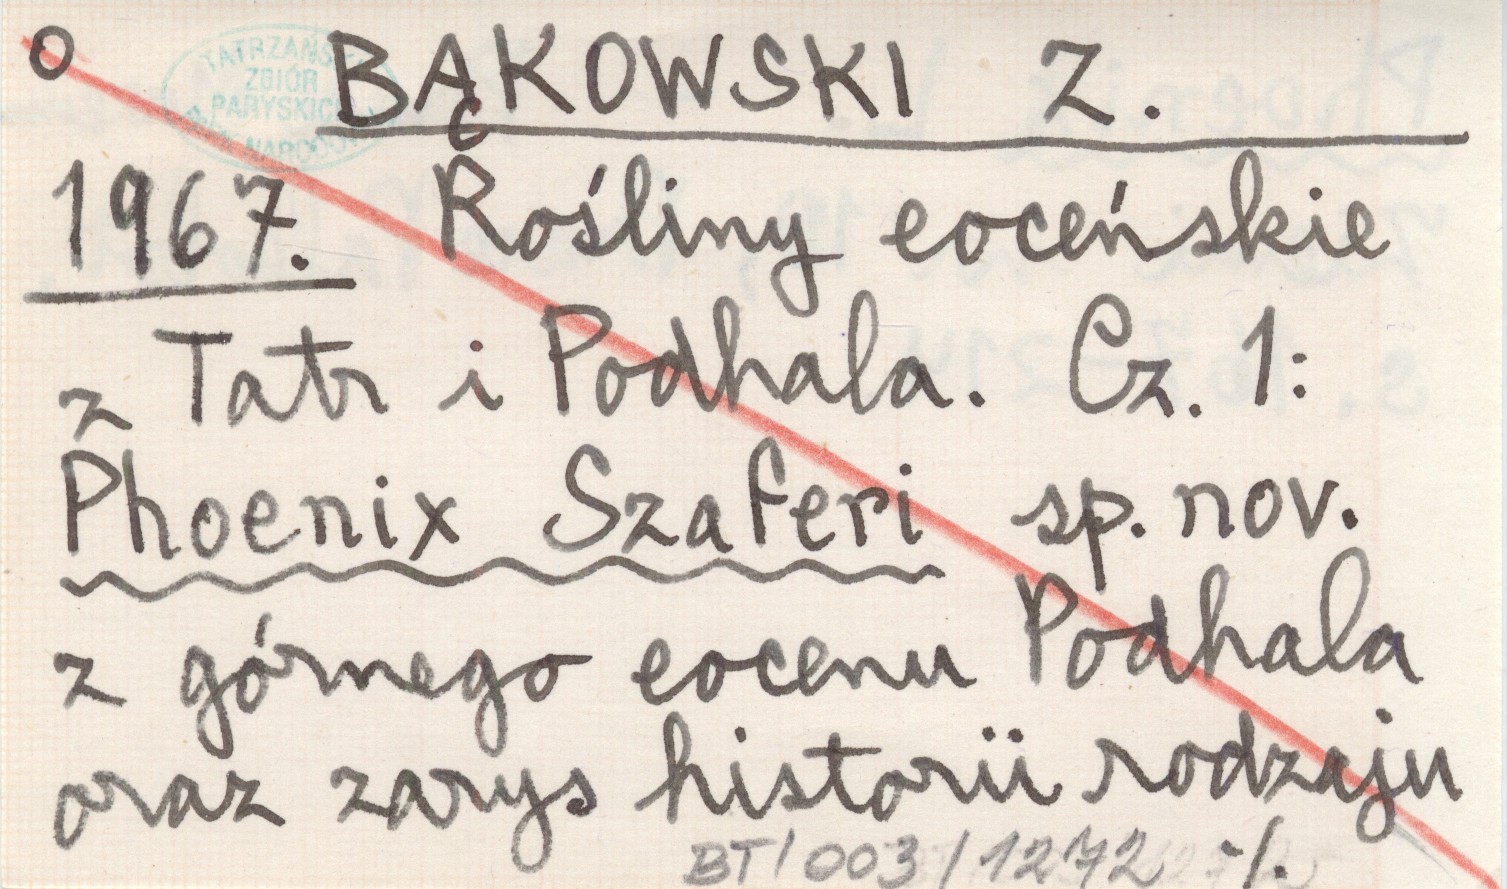 o BĄKOWSKI Z.
TATRZAŃSKI
ZBIÓR
PARYSKICH
1967. Rośliny eoceńskie
z Tatr i Podhala. Cz. 1:
Phoenix Szaferi sp. nov.
z górnego eocenu Podhala
oraz zarys historii rodzaju
BT/003/1272 -/.